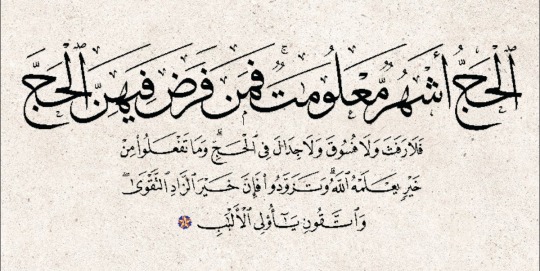 ٱلْحَجُّ أَشْهُرٌ مَّعْلُومَٰتٌ ۚ فَمَن فَرَضَ فِيهِنَّ ٱلْحَجَّ
فَلَا رَفَثَ وَلَا فُسُوقَ وَلَا جِدَالَ فِى ٱلْحَجِّ ۗ وَمَا تَفْعَلُوا۟ مِنْ
خَيْرٍ يَعْلَمْهُ ٱللَّهُ ۗ وَتَزَوَّدُوا۟ فَإِنَّ خَيْرَ ٱلزَّادِ ٱلتَّقْوَىٰ ۚ
وَٱتَّقُونِ يَٰٓأُو۟لِى ٱلْأَلْبَٰبِ